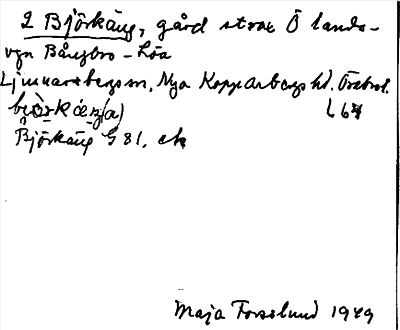 2 Björkäng, gård strax Ö lands-
vgn Bångbro - Löa
Ljusnarsbergs sn, Nya Kopparbergs hd. Örebro l.
bjò̤rkäŋ(a) L 64
Björkäng G 81, ek
Maja Forsslund 1949